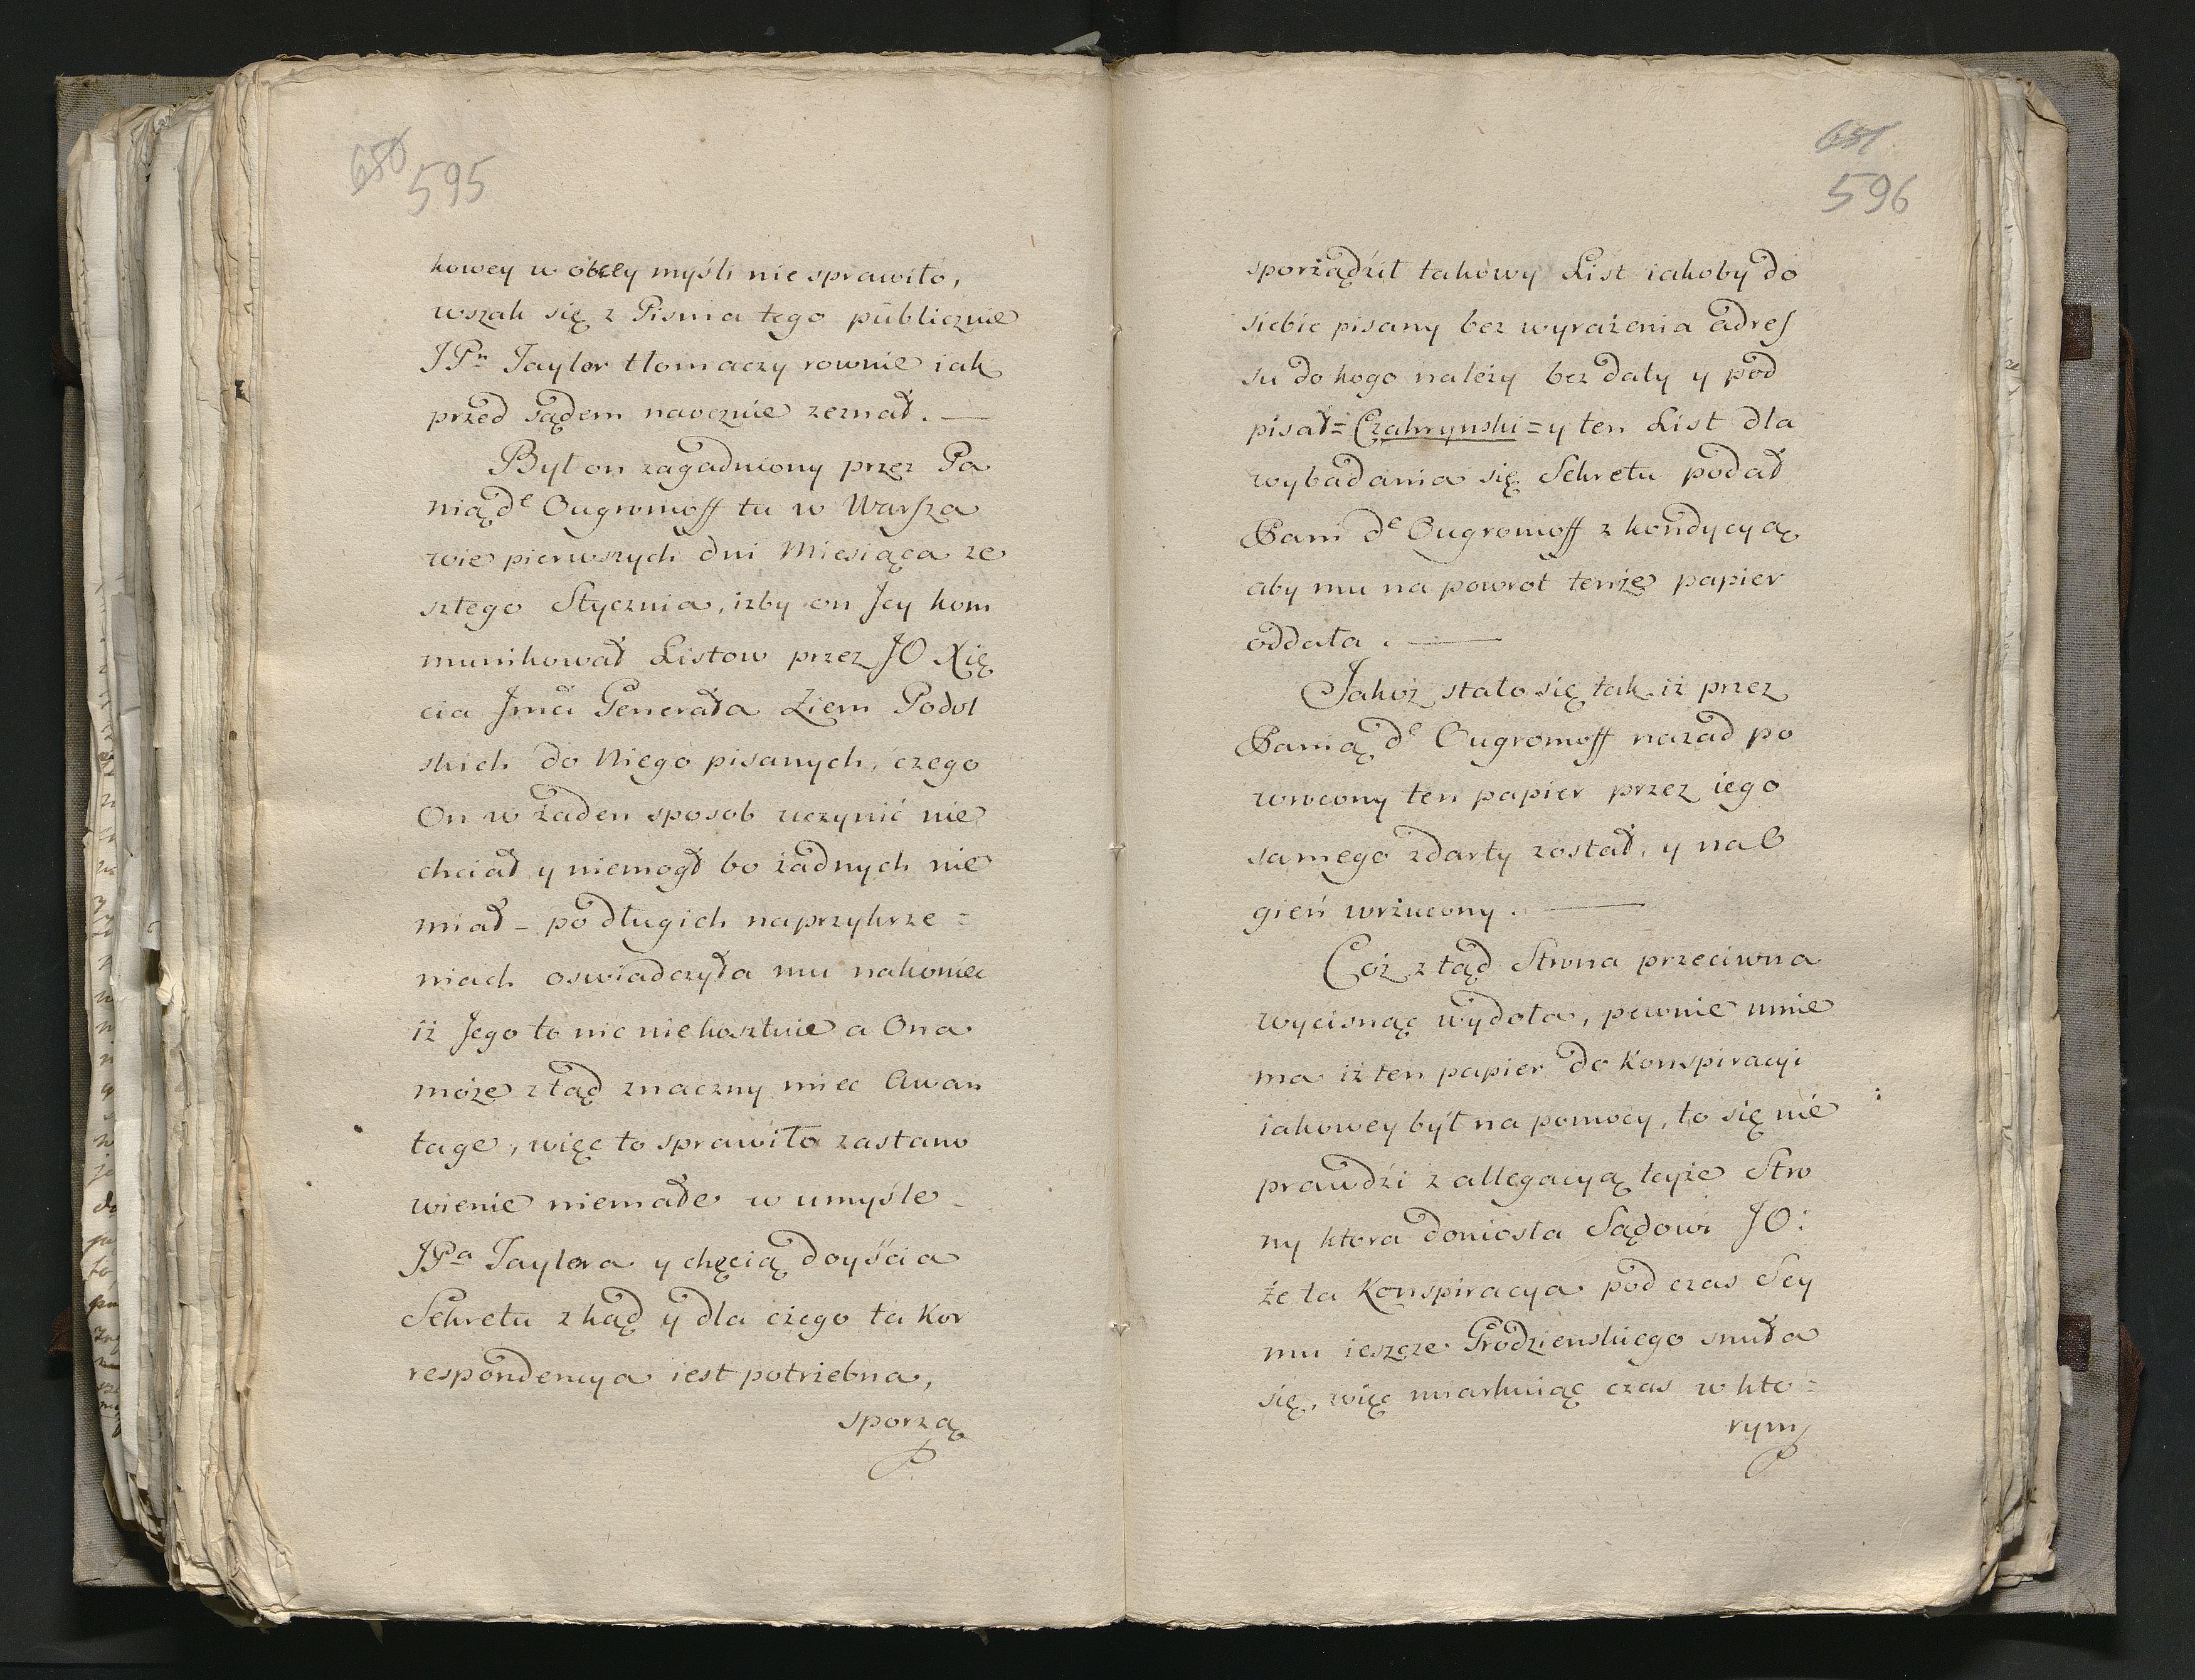 680 595
kowey w obcey myśli nie sprawiło,
wszak się z Pisma tego publicznie
JPn Taylor tłomaczy rownie iak
przed sądem naocznie zeznał. —
Był on zagadniony przez Pa
nią de Ougromoff tu w Warsza
wie pierwszych dni Miesiąca ze
szłego Stycznia, izby on Jey kom
munikował Listow przez JO Xię
cia Jmći Generała Ziem Podol
skich do Niego pisanych, czego
On w żaden sposob uczynić nie
chciał y niemogł bo żadnych nie
miał - po długich naprzykrze=
niach oswiadczyła mu nakoniec
iż Jego to nic niekosztuie a Ona
może ztąd znaczny miec Awan
tage, więc to sprawiło zastano
wienie niemałe w umyśle
JPa Taylora y chęcią doyścia
Sekretu zkąd y dla czego ta Kor
respondencya iest potrzebna,
sporzą
651
596
sporządźił takowy List iakoby do
siebie pisany bez wyrażenia adres
su do kogo należy bez daty y pod
pisał = Czahrynski = y ten List dla
wybadania się Sekretu podał
Pani de Ougromoff z kondycyą
aby mu na powrot tenże papier
oddała. —
Jakoż stało się tak iż przez
Panią de Ougromoff nazad po
wrocony ten papier przez iego
samego zdarty został, y na O
gień wrżucony. —
Coż ztąd Strona przeciwna
wycisnąc wydoła, pewnie mnie
ma iż ten papier do Konspiracyi
iakowey był na pomocy, to się nie
prawdźi z allegacyą teyże Stro
ny ktora doniosła Sądowi JO:
że ta Konspiracya pod czas Sey
mu ieszcze Grodzienskiego snuła
się, więc miarkuiąc czas w kto=
rym